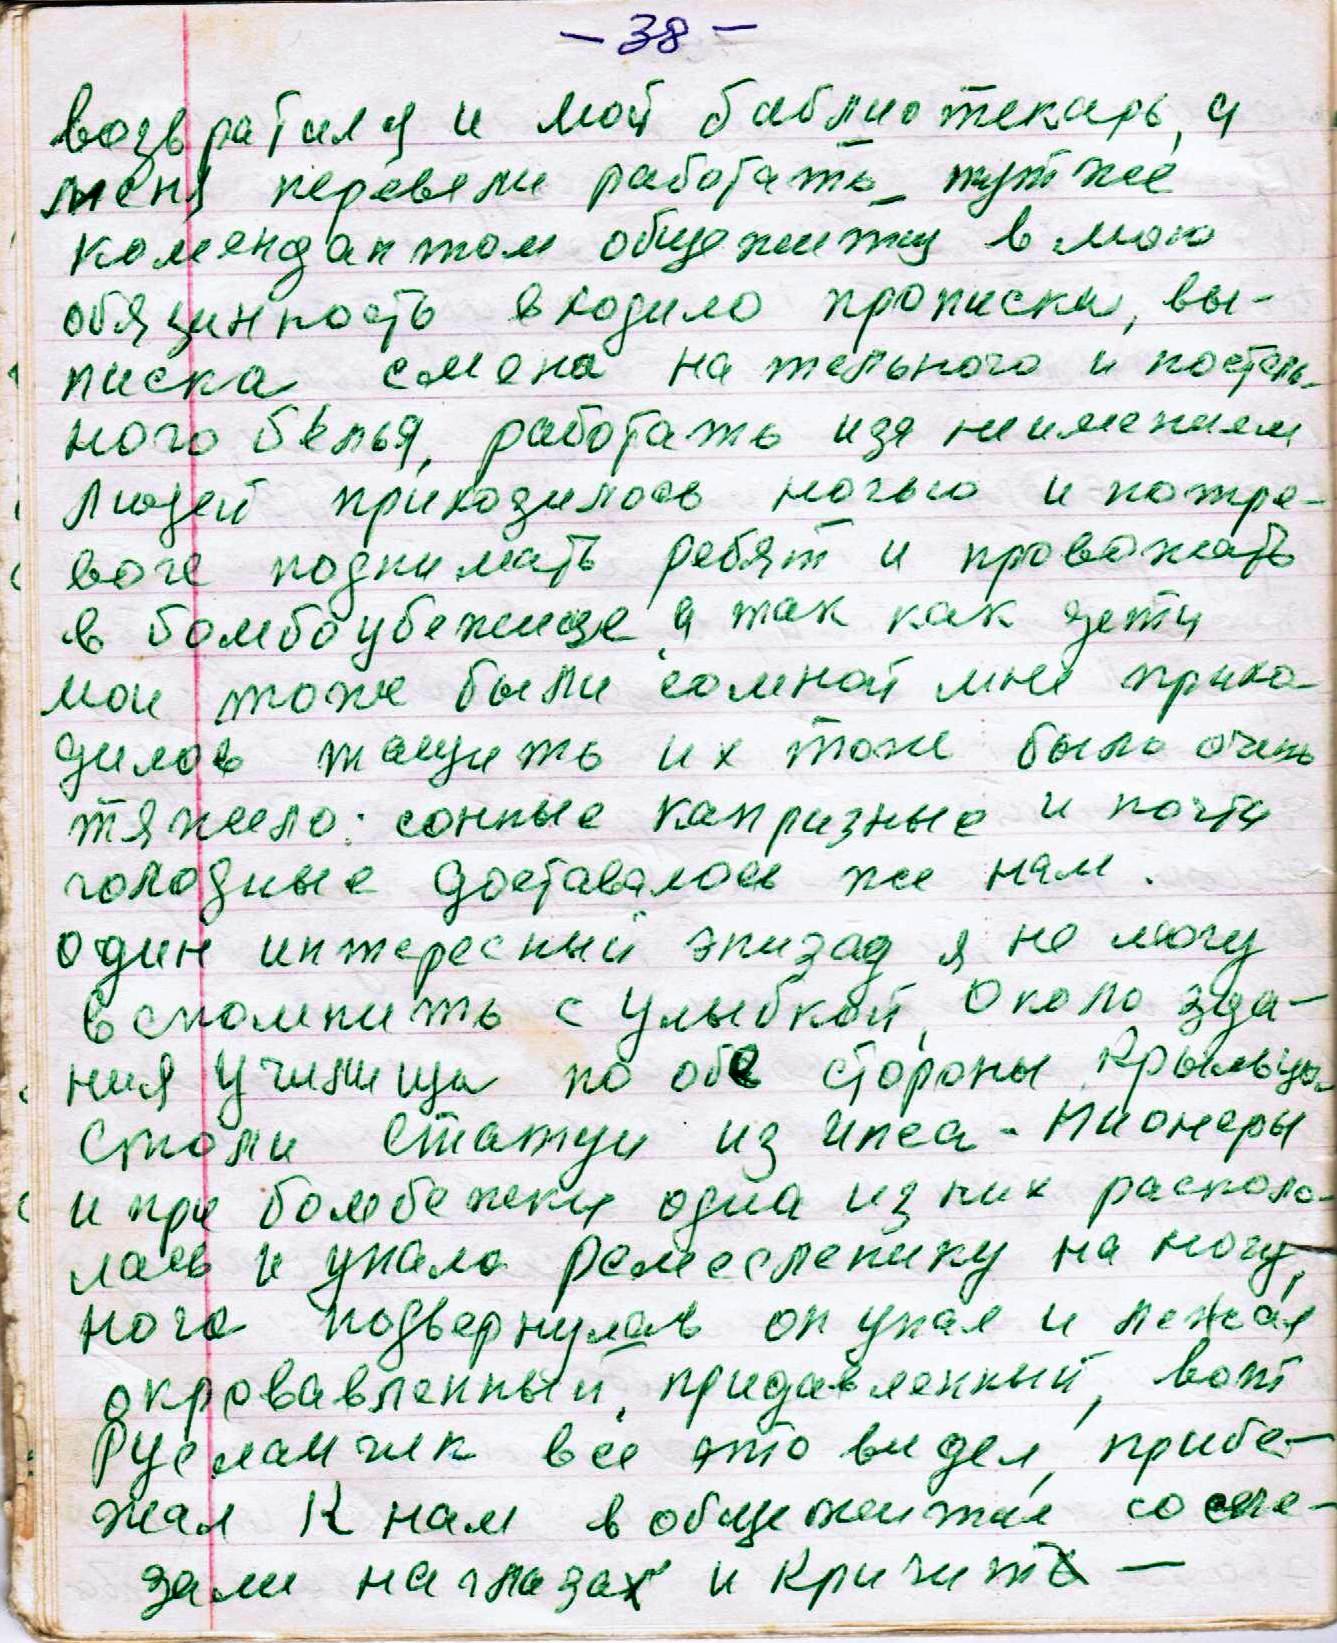 — 38 —
возвратился и мой баблиотекарь, а
меня перевели работать тут же
комендантом общежитя в мою
обязинность входило прописка, вы-
писка смена нательного и постель-
ного белья, работать изя неимением
людей приходилось ночью и потре-
воге поднимать ребят и провожать
в бомбоубежище, а так как дети
мои тоже были сомной мне прихо-
дилось тащить их тоже было очень
тяжело: сонные капризные и почти
голодные доставалось же нам.
один интересный эпизад я не могу
вспомнить с улыбкой, Около зда-
ния училища по обе стороны крыльца
стояли статуи из гипса - Пионеры
и при бомбежки одна из них расколо-
лась и упала ремеслениκу на ногу,
нога подвернулась он упал и лежал
окровавленный, придавленный, вот
Русланчик всё это видел, прибе-
жал к нам в общежитие со сле-
зами на глазах и кричит —